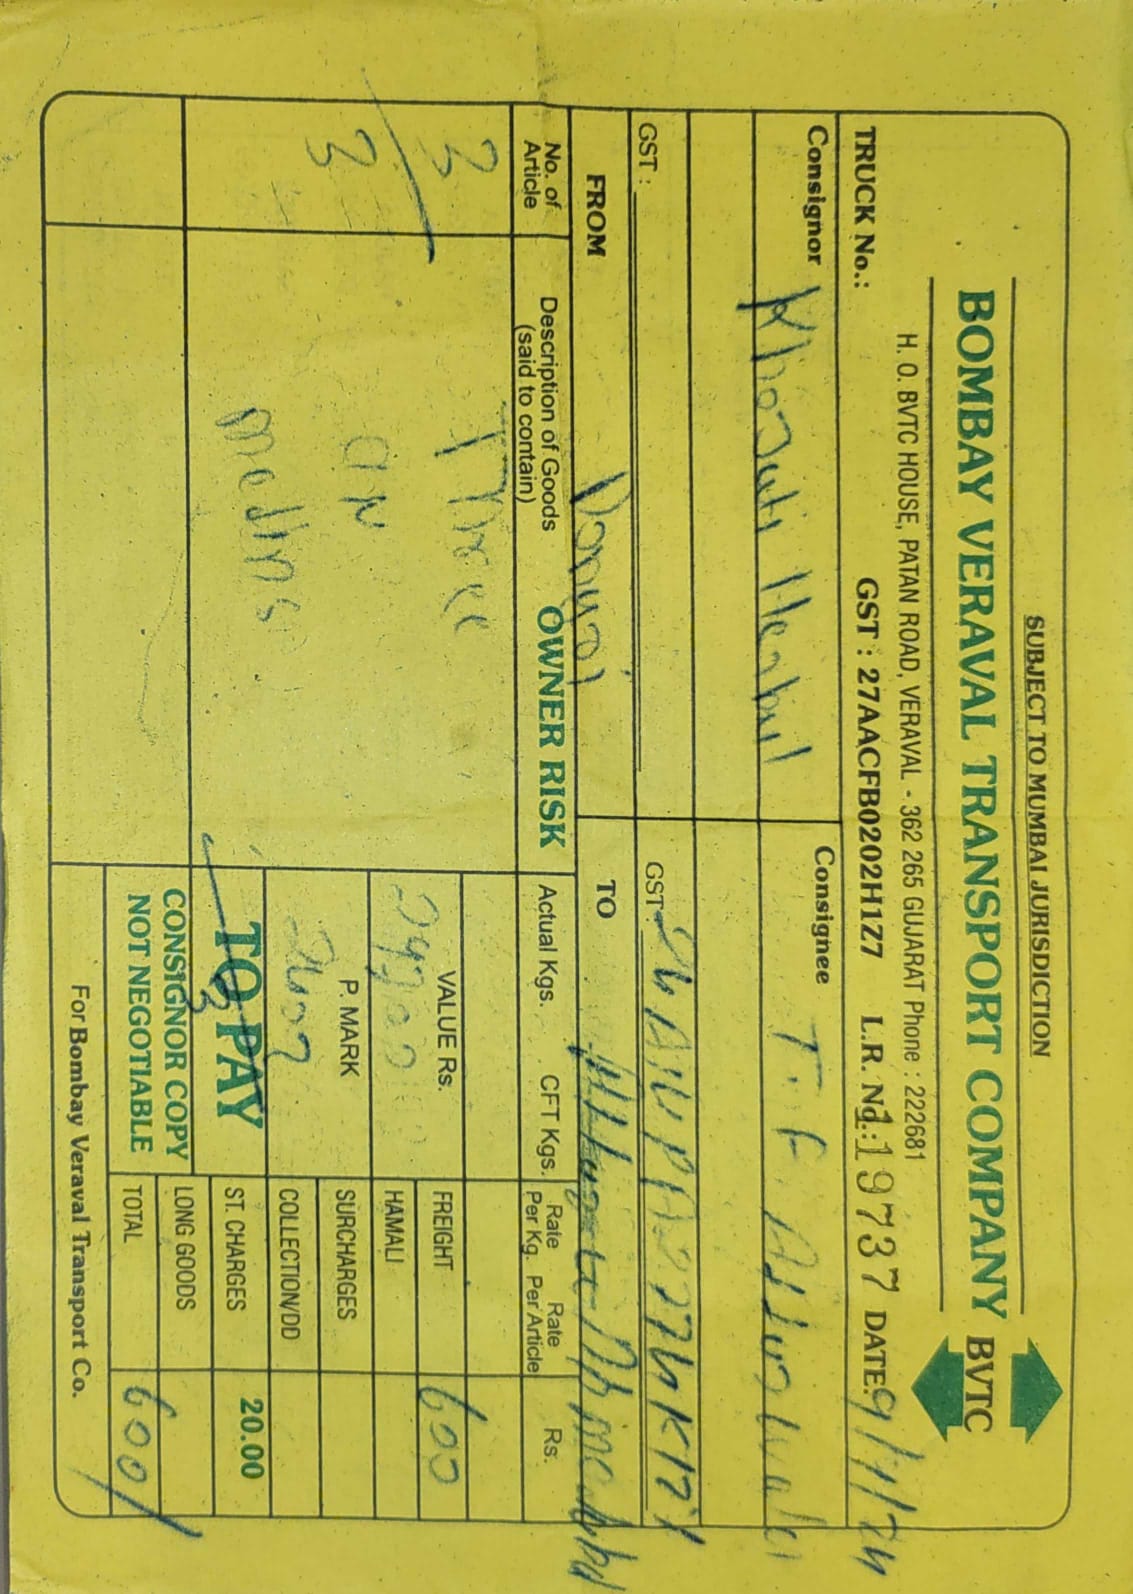 SUBJECT TO MUMBAI JURISDICTION
BOMBAY VERAVAL TRANSPORT COMPANY BVTC
H. O. BVTC HOUSE, PATAN ROAD, VERAVAL - 362 265 GUJARAT Phone : 222681
TRUCK No.: GST : 27AACFB0202H1Z7 L.R. No.: 119737 DATE: 9/1/24
Consignor Khojati Herbul Consignee T. F.
GST : GST:
FROM TO
No. of Article Description of Goods (said to contain) OWNER RISK Actual Kgs. CFT Kgs. Rate Per Kg. Rate Per Article Rs.
3 Three VALUE Rs. FREIGHT 600
HAMALI
3 P. MARK SURCHARGES
COLLECTION/DD
TO PAY ST. CHARGES 20.00
CONSIGNOR COPY LONG GOODS
NOT NEGOTIABLE TOTAL 600/
For Bombay Veraval Transport Co.